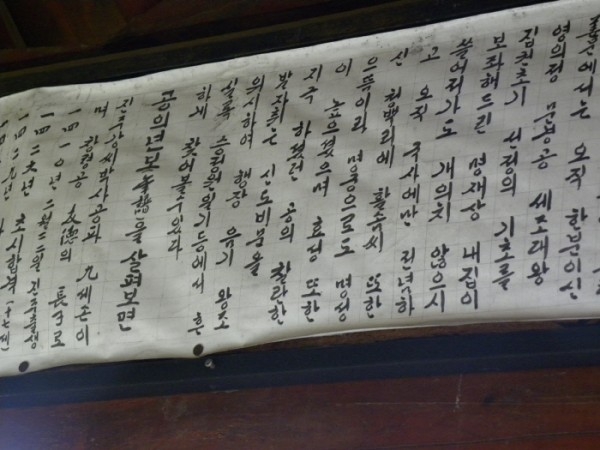 조선에서는 오직 한분이신
영의정 세조대왕
집권초기 선정의 기초를
보좌해드린 명재상 내집이
쓸어져가도 개의치 않으시
고 오직 국사에만 전념하
신 청백리에 활솜씨 또한
으뜸이라 명궁으로도 명성
이 높으셨으며 효성 또한
지극 하셨던 공의 찬란한
발자취는 신도비문을
위시하여 행장 음기 왕조
실록 승정원일기등에서 흔
하게 찾아볼수있다
공의연보年譜를 살펴보면
진주강씨박사공파 九세손이
며 友德의 長子로
一四一〇년
一四二九년 초시합격(十九세)